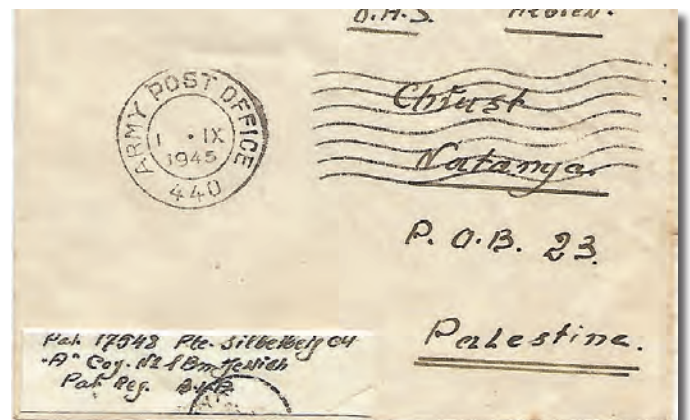 O.A.S.
ARMY POST OFFICE
1 · IX
1945
440
Natanya.
P. O. B. 23.
Palestine.
Pal. 17548 Pte. Silberberg
"A" Coy. No 1 Bn Jewish
Pal. Reg.